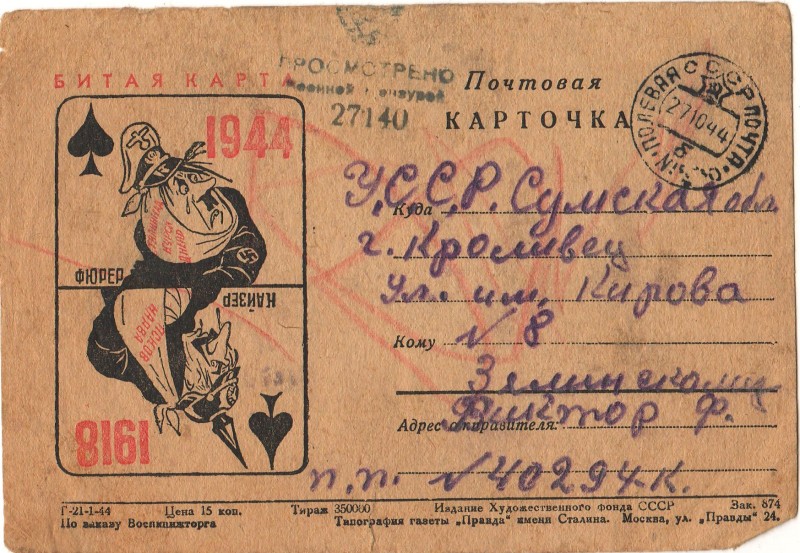 БИТАЯ КАРТА
ПРОСМОТРЕНО
Военной
27140
Почтовая
КАРТОЧКА
ПОЛЕВАЯ СССР ПОЧТА
271044
1944
ФЮРЕР
КАЙЗЕР
ПСКОВ
НАРВА
1918
У,С,С,Р, Сумская обл.
Куда
г. Кроливец
ул. им. Кирова
Кому № 8
Зялинскому
Виктор Ф.
Адрес отправителя:
п.п. № 40294-К.
Г-21-1-44 Цена 15 коп. Тираж 350000 Издание Художественного фонда СССР Зак. 874
По заказу Воениздторга Типография газеты „Правда" имени Сталина. Москва, ул. „Правды" 24.